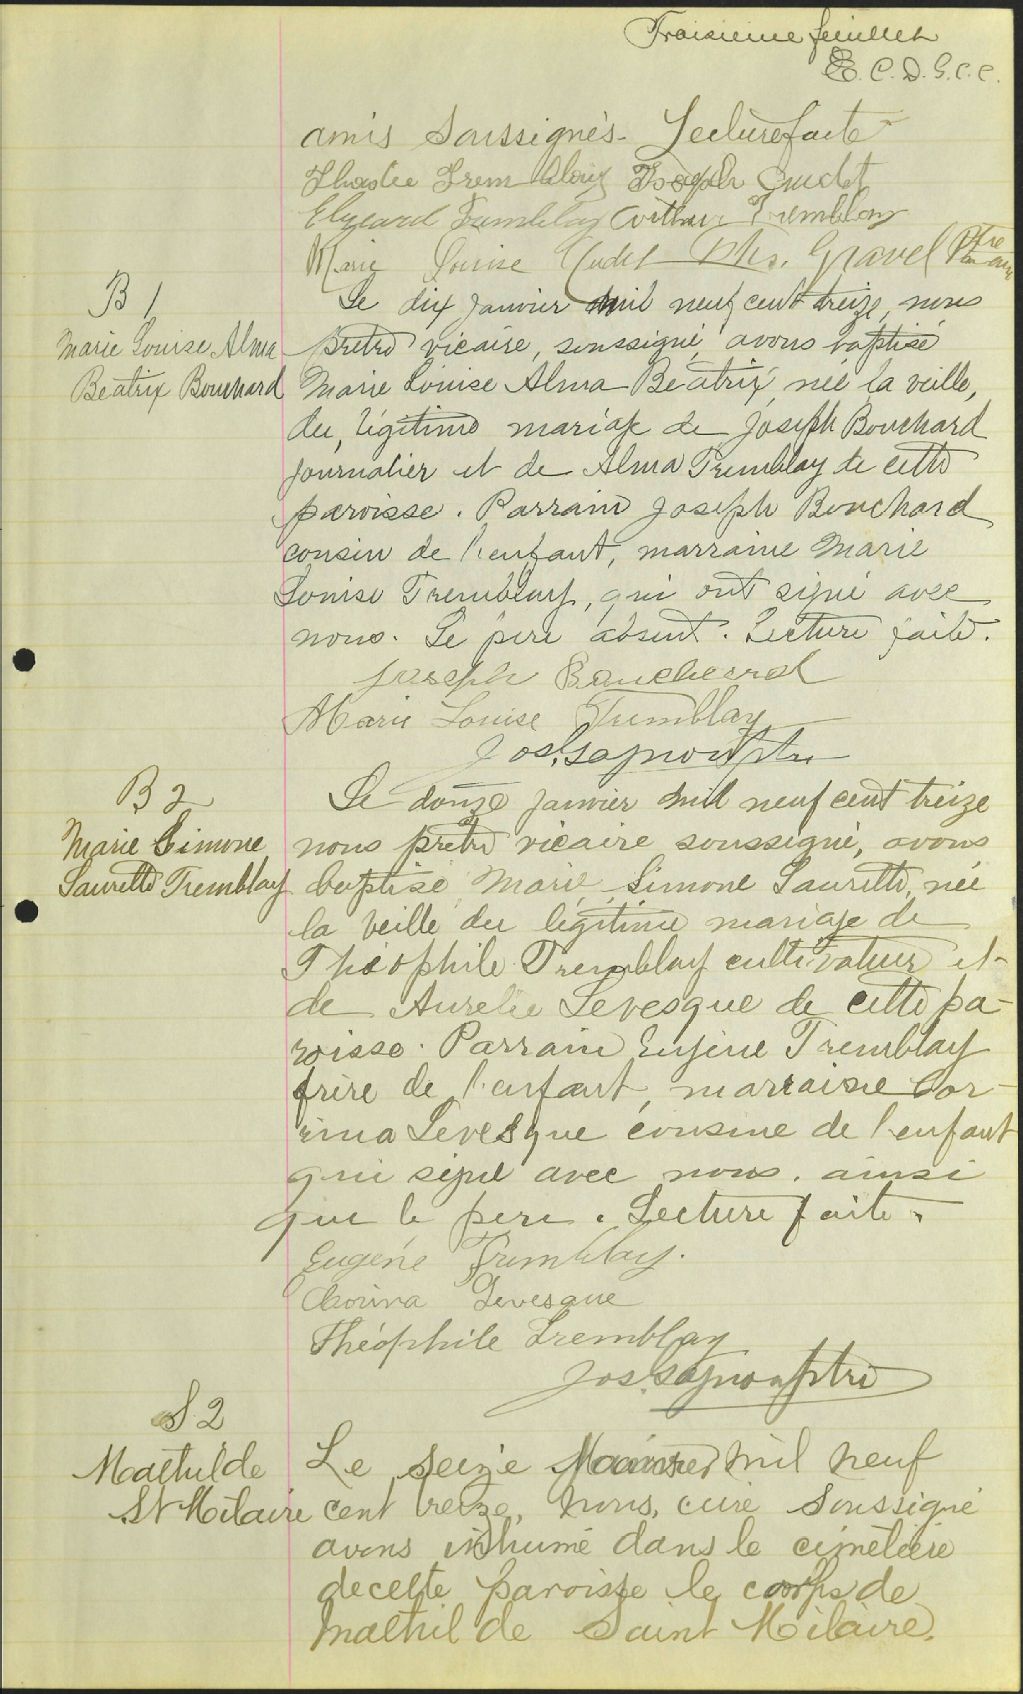 Troisième feuillet
C. D. G. C. C.
amis soussignés. Lecture faite
Joseph Gudet
Elzeard Tremblay Arthur Tremblay
Marie Louise Gudet Gravel Ptre
B 1
Marie Louise Alma
Beatrix Bouchard
Le dix janvier mil neuf cent treize, nous
prêtre vicaire, soussigné, avons baptisé
Marie Louise Alma Beatrix, née la veille,
du légitime mariage de Joseph Bouchard
journalier et de Alma Tremblay de cette
paroisse. Parrain Joseph Bouchard
cousin de l'enfant, marraine Marie
Louise Tremblay, qui ont signé avec
nous. Le père absent. Lecture faite.
Joseph Boucherd
Marie Louise Tremblay
Jos. ptre
B 2
Marie Simone
Laurette Tremblay
Le douze janvier mil neuf cent treize
nous prêtre vicaire soussigné, avons
baptisé Marie Simone Laurette, née
la veille du légitime mariage de
Théophile Tremblay cultivateur et
de Aurelie Levesque de cette pa-
roisse. Parrain Eugène Tremblay
frère de l'enfant, marraine Cor-
inna Levesque cousine de l'enfant
qui signe avec nous. ainsi
que le père. Lecture faite.
Eugène Tremblay.
Corina Levesque
Théophile Tremblay
Jos. ptre
S 2
Mathilde
St Hilaire
Le seize Janvier mil neuf
cent treize, nous, curé soussigné
avons inhumé dans le cimetière
de cette paroisse le corps de
Mathilde Saint Hilaire,